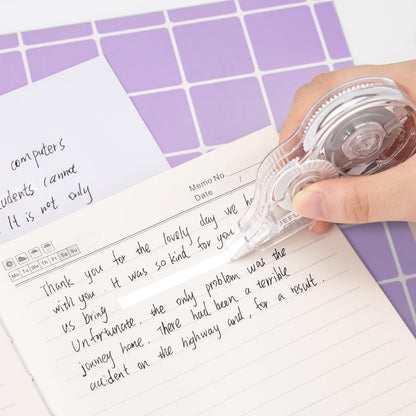 computers
students cannot
. It is not only
Memo No.
Date /
Mo Tu We Th Fr Sa Su
Thank you for the lovely day we h
with you . It was so kind for you
us bring
Unfortunate. the only problem was the
journey home. There had been a terrible
accident on the highway and, for a result.